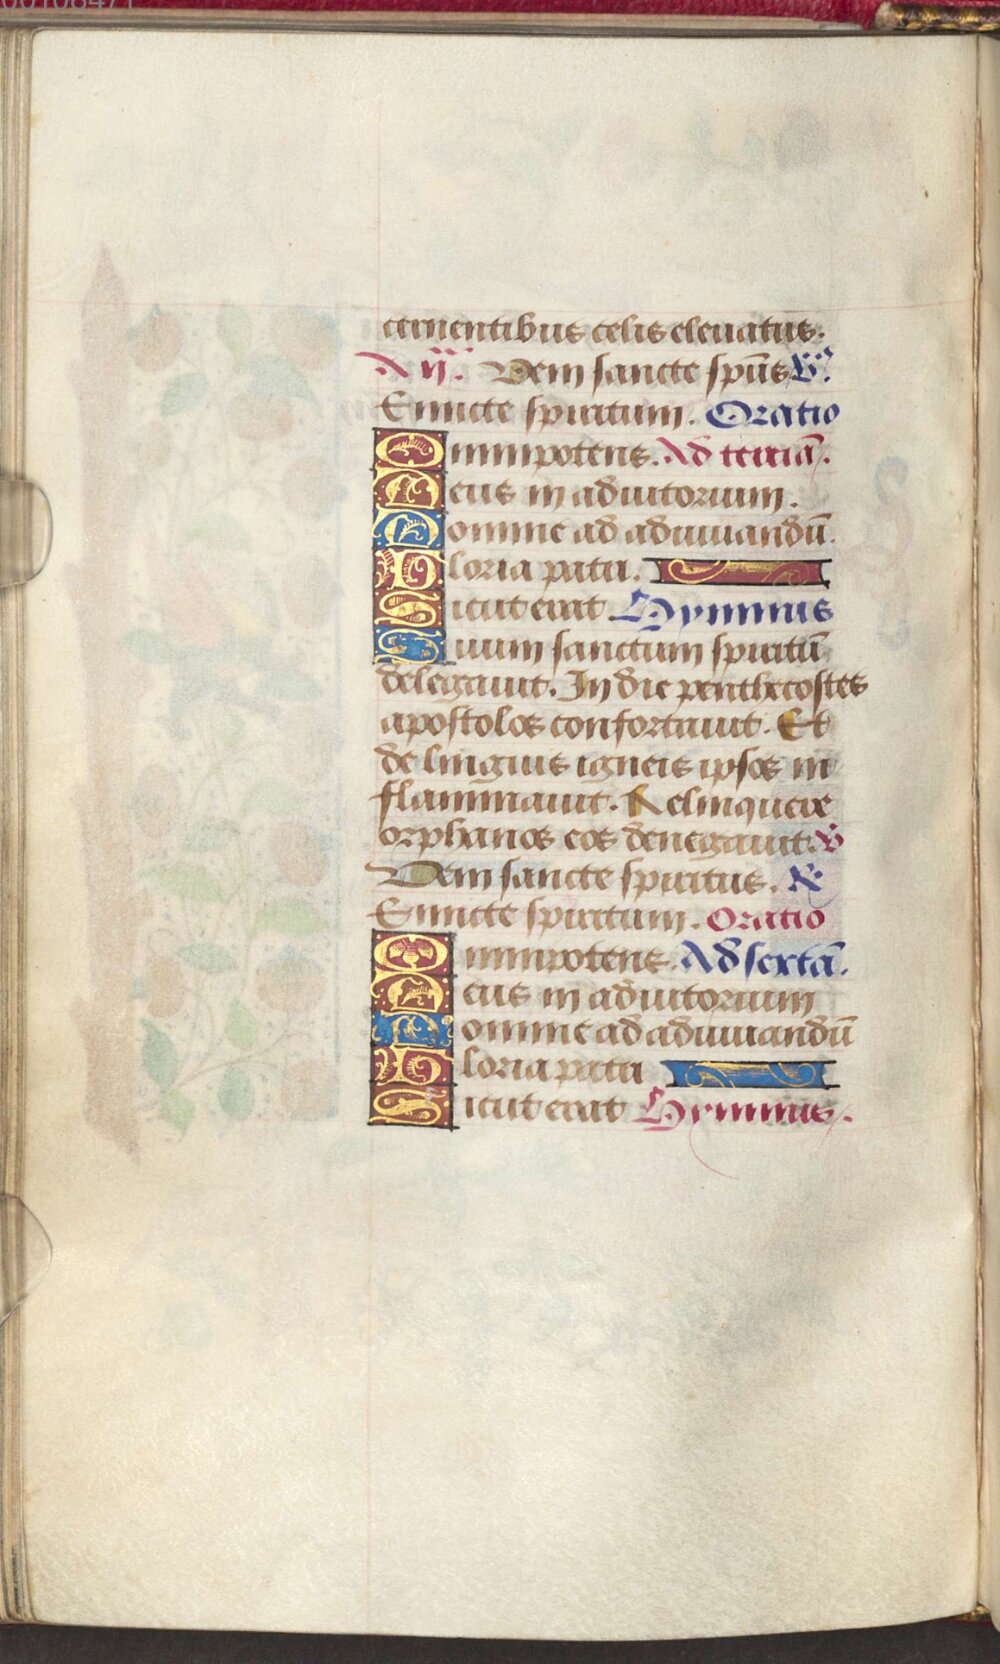 cernentibus celis eleuatus.
Veni sancte spūs
Emitte spiritum. Oratio
Omnipotens. Ad terciā.
Deus in adiutorium.
Domine ad adiuuandū.
Gloria patri.
Sicut erat Hymnus
Suum sanctum spiritū
delegauit. In die penthecostes
apostolos confortauit. Et
de linguis igneis ipsos in
flammauit. Relinquere
orphanos eos denegauit. v̄
Veni sancte spiritus. R
Emitte spiritum. Oratio
Omnipotens. Ad sextā.
Deus in adiutorium
Domine ad adiuuandū
Gloria patri
Sicut erat Hymnus.